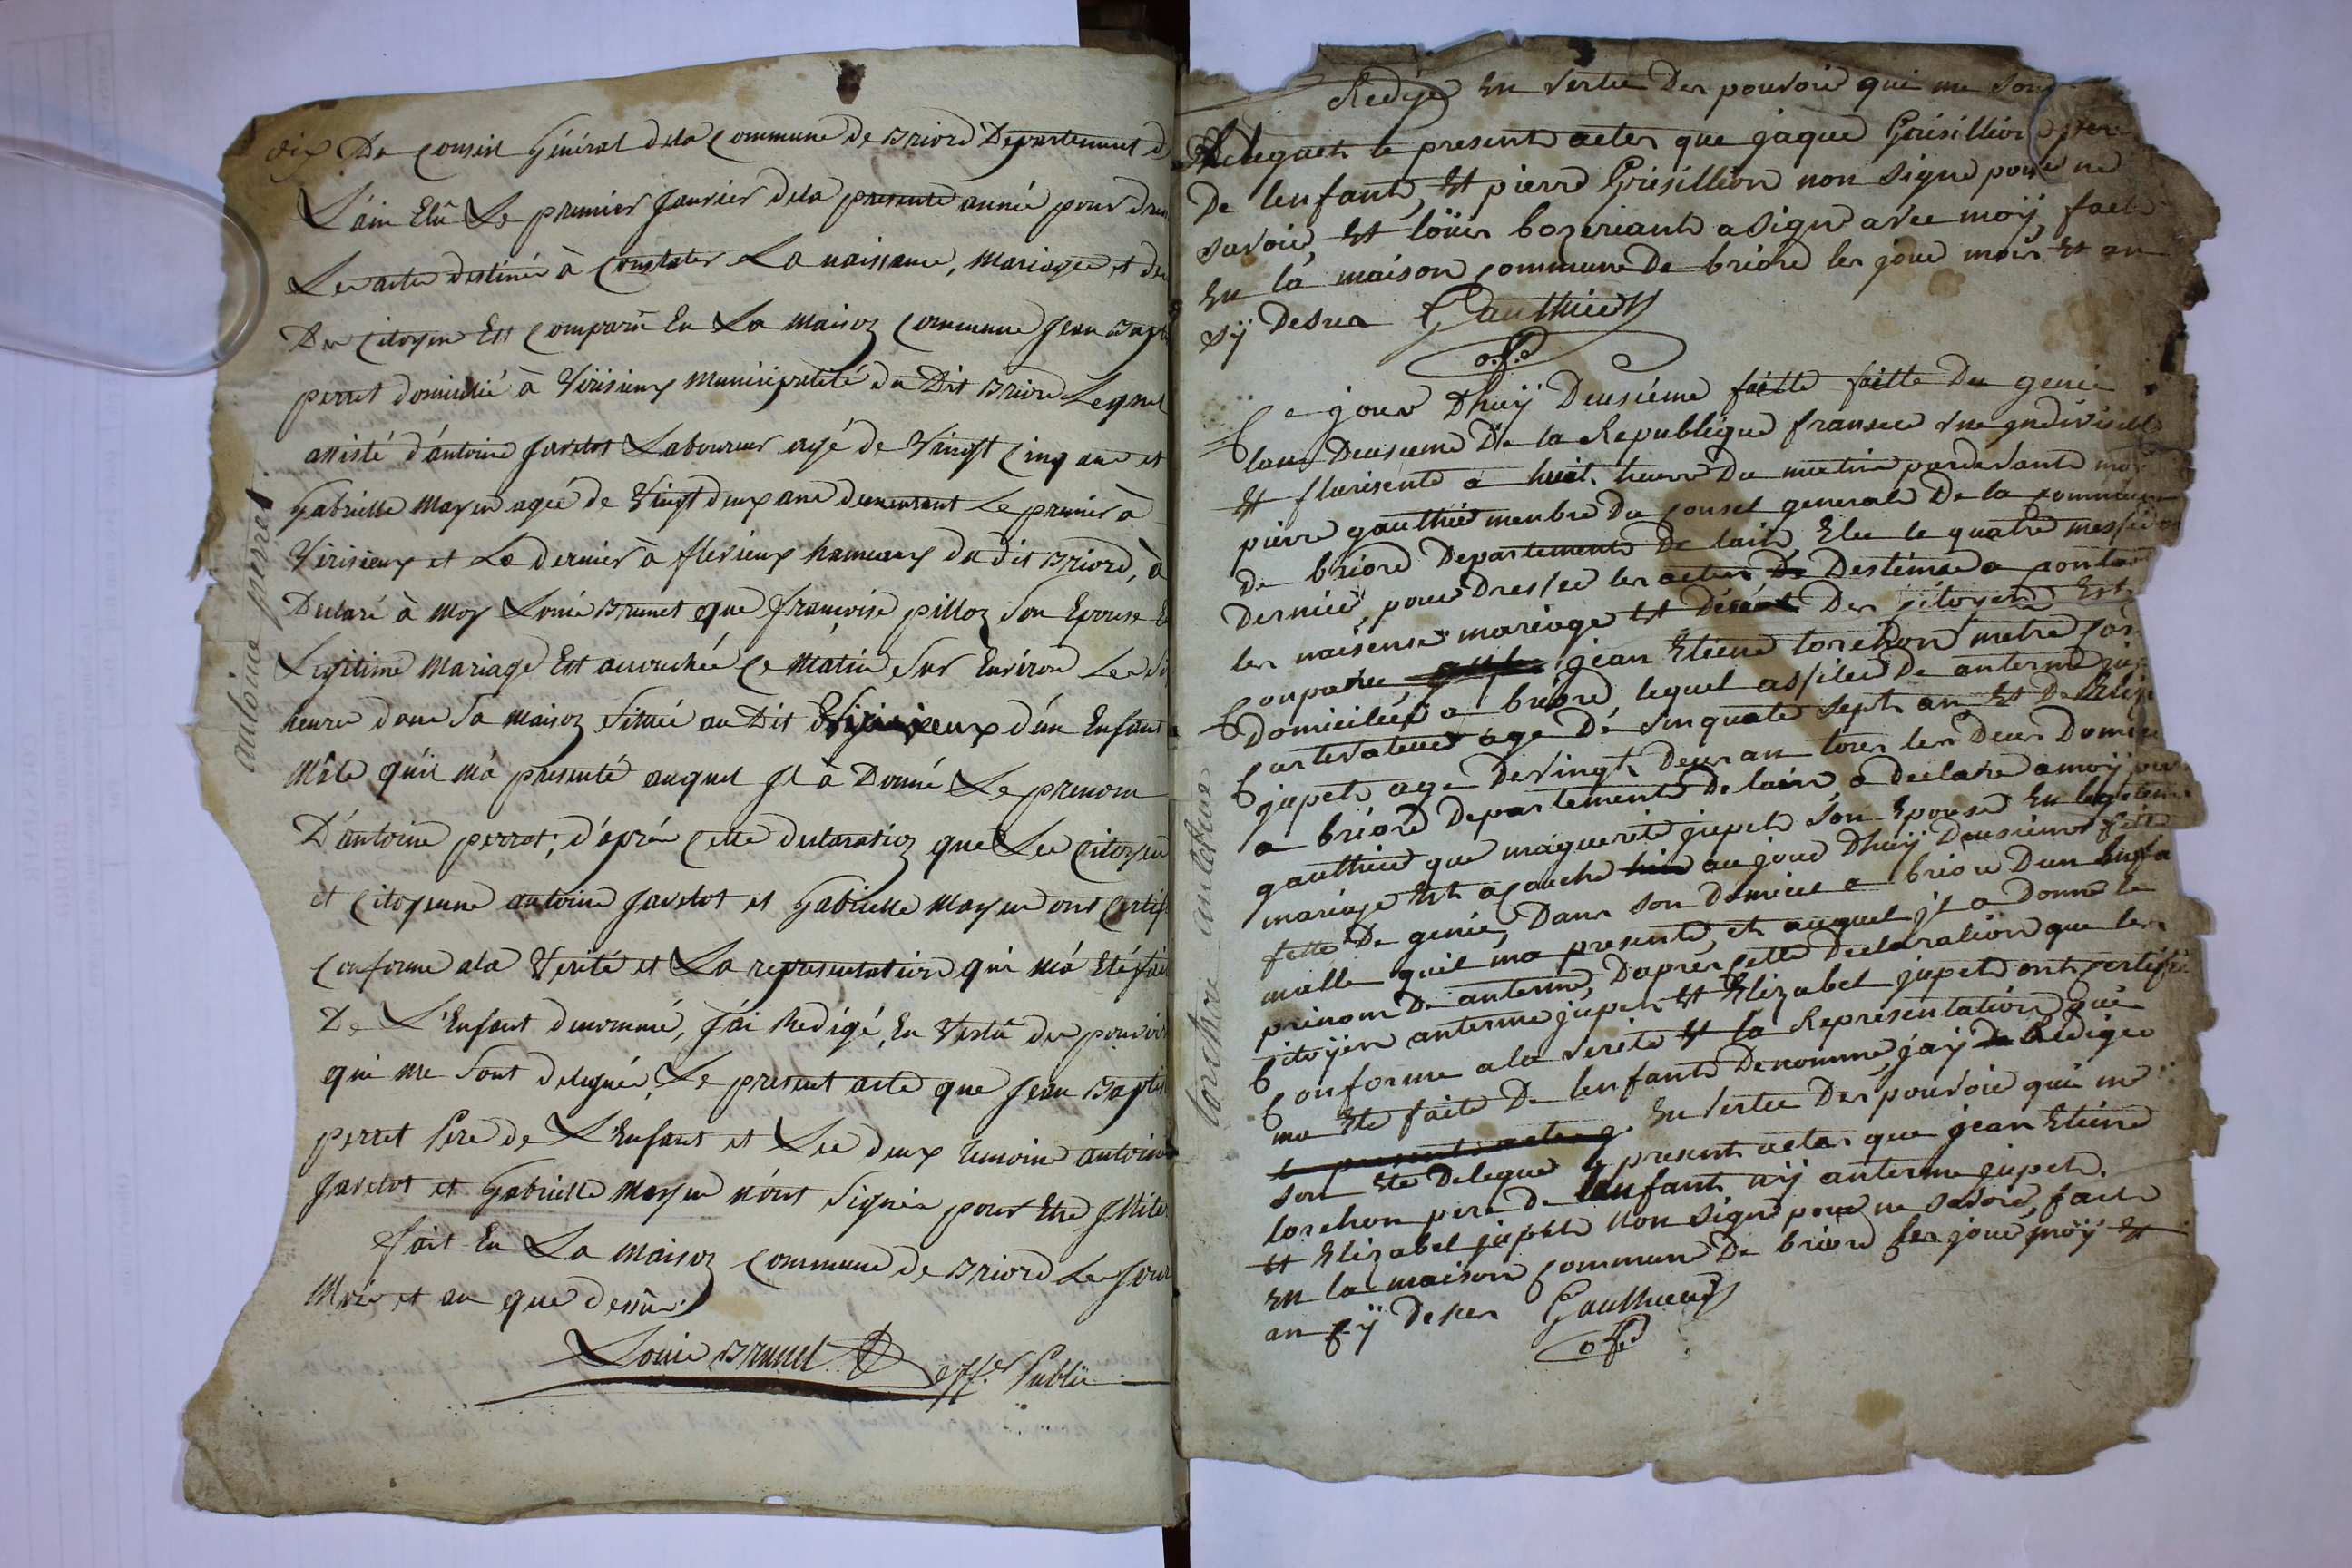 dix De Conseil Général dela Commune de Briord Departement d
L'ain Elû Le premier Janvier dela presente année pour dres
Les actes destinés à Constater La naissance, Mariages et de
Des Citoyens Est Comparû En La Maison Commune Jean Bapt
perret domicilié à Vérizieux Municipalité du Dit Briord Lequel
assisté d'antoine Javelot Laboureur agé de Vingt Cinq ans et
Gabrielle Mayen agée de Vingt deux ans demeurant Le premier à
Vérisieux et La dernier à flevieux hameaux du dit Briord, à
Déclaré à Moy Louis Brunet que françoise pilloz Son Epouse E
Legitime Mariage Est accouchée Ce Matin Sur Environ Les Si
heures dans Sa Maison Située au Dit Vérizieux d'un Enfant
Mâle qu'il m'à presenté auquel Jl à Donné Le prenom
D'antoine perret; d'après Cette declaration que Les Citoyen
et Citoyenne antoine Javelot et Gabrielle Mayen ont Certif
Conforme ala Verité et La representation qui m'à Eté fait
De L'Enfant denommé, J'ai Redigé, En Vertû des pouvoir
qui me Sont delegués, Le present acte que Jean Baptis
perret Père de L'Enfant et Les deux temoins antoine
Javelot et Gabrielle Mayen n'ont Signés pour Etre Jllite
fait En La Maison Commune de Briord Les Jour
Mois et an que dessus
Louis Brunet off.er Public
antoine perret
Redigé En vertu Des pouvoir qui me son
Delegués le present actes que jaque Grisillion pere
De lenfant, Et pierre Grisillion non Signé pour ne
savoir, Et louis bozoriant a Signé avec moÿ, fact
En la maison commune De briord les jour mois Et an
sÿ Desus Gauthier
o.f.
Ce jour Dhuÿ Deusiéme faitte faitte Du genie
lans Deusieme De la Republique fransese vne yndivisible
Et flurisente a huit heure Du matin pardevant moÿ
pierre gauthier menbre Du Consel general De la commune
De briord Departement De lain Elu le quatre messidor
Dernier, pour Dresser les actes De Destinée a contat
les naisense mariage Et Déséct Des sitoyens Est
Conparue jean Etiene torchon metre Cor
Domicilié a briord lequel assiteé De anterme jup
Cultivateur age De sinquate sept an Et De Eliza
jupet, age De vingt Deus an tous les Deus Domici
a briord Departement De lain a Declare a moÿ pier
gauthier que maguerite jupet son Epouse En legetime
mariage Est acouche hier au jour Dhuÿ Deusieme fette
fette De genie, Dans son Domicile a briord Dun Enfa
malle quil ma presenté, et auquel jl a Donne le
prinom De anterme, Dapres Cette Declaration que les
Citoÿen anterme jupet Et Elizabet jupet ont certifie
Conforme a la verite Et la Representation qui
ma Ete faite De lenfant Denomme, jaÿ De Redigeo
le present actes g En vertu Des pouvoir qui me
son Ete Delegue le present actes que jean Etiene
torchon pere De lenfant nÿ anterme jupet
Et Elizabet jupet non Signé pour ne savoir, fait
En la maison commun De briord les jour moÿ Et
an sÿ Desus Gauthier
o.f.
torchon anterme